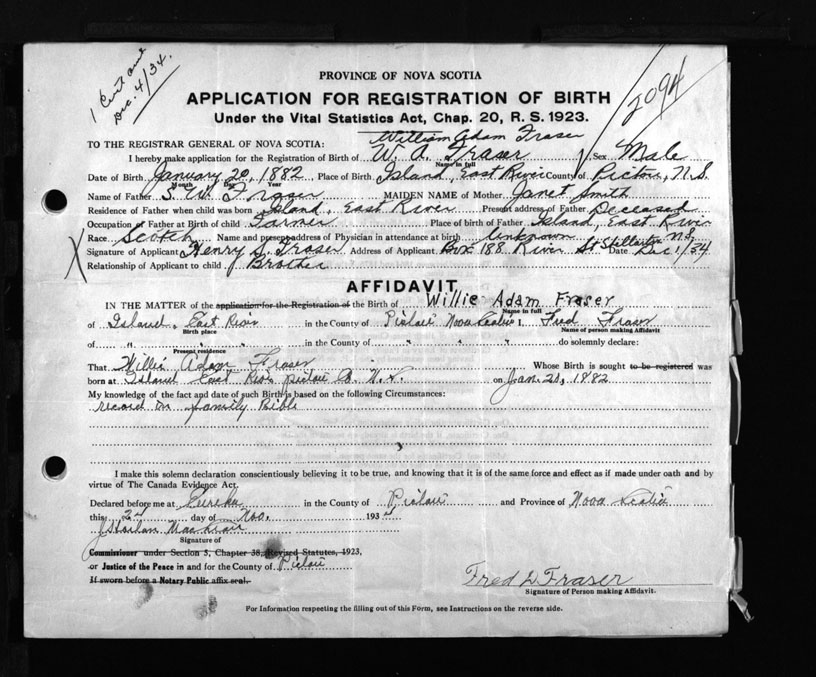 1 Cert and
Dec. 4/34.
2094
PROVINCE OF NOVA SCOTIA
APPLICATION FOR REGISTRATION OF BIRTH
Under the Vital Statistics Act, Chap. 20, R. S. 1923.
William Adam Fraser
TO THE REGISTRAR GENERAL OF NOVA SCOTIA:
I hereby make application for the Registration of Birth of W. A. Fraser Sex Male
Name in full
Date of Birth January 20, 1882 Place of Birth Island, East River County of Pictou, N.S.
Month Day Year
Name of Father S. W. Fraser MAIDEN NAME of Mother Janet Smith
Residence of Father when child was born Island, East River Present address of Father Deceased
Occupation of Father at Birth of child Farmer Place of birth of Father Island, East River
Race Scotch Name and present address of Physician in attendance at birth Unknown
Signature of Applicant Henry S. Fraser Address of Applicant Box 188 River St Stellarton N.S. Date Dec 1/34
Relationship of Applicant to child Brother
AFFIDAVIT
IN THE MATTER of the application for the Registration of the Birth of Willie Adam Fraser
Name in full
of Island, East River in the County of Pictou Nova Scotia I, Fred Fraser
Birth place Name of person making Affidavit
of " " in the County of " " " do solemnly declare:
Present residence
That Willie Adam Fraser Whose Birth is sought to be registered was
born at Island East River Pictou Co. N.S. on Jan. 20, 1882
My knowledge of the fact and date of such Birth is based on the following Circumstances:
record in family Bible
I make this solemn declaration conscientiously believing it to be true, and knowing that it is of the same force and effect as if made under oath and by
virtue of The Canada Evidence Act.
Declared before me at Eureka in the County of Pictou and Province of Nova Scotia
this day of Nov. 1934
Signature of
Commissioner under Section 5, Chapter 38, Revised Statutes, 1923,
or Justice of the Peace in and for the County of Pictou
If sworn before a Notary Public affix seal.
Fred D Fraser
Signature of Person making Affidavit.
For Information respecting the filling out of this Form, see Instructions on the reverse side.